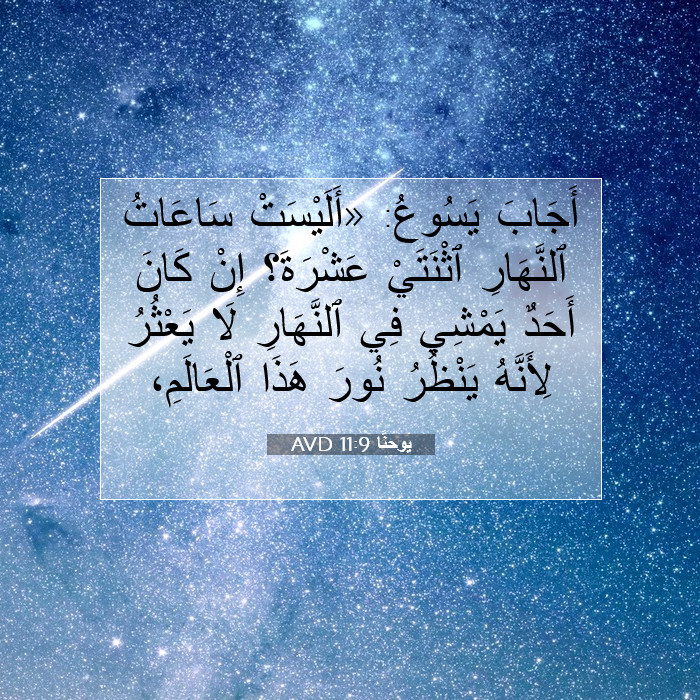 أَجَابَ يَسُوعُ: «أَلَيْسَتْ سَاعَاتُ
ٱلنَّهَارِ ٱثْنَتَيْ عَشْرَةَ؟ إِنْ كَانَ
أَحَدٌ يَمْشِي فِي ٱلنَّهَارِ لَا يَعْثُرُ
لِأَنَّهُ يَنْظُرُ نُورَ هَذَا ٱلْعَالَمِ،
يوحنَّا 11:9 AVD